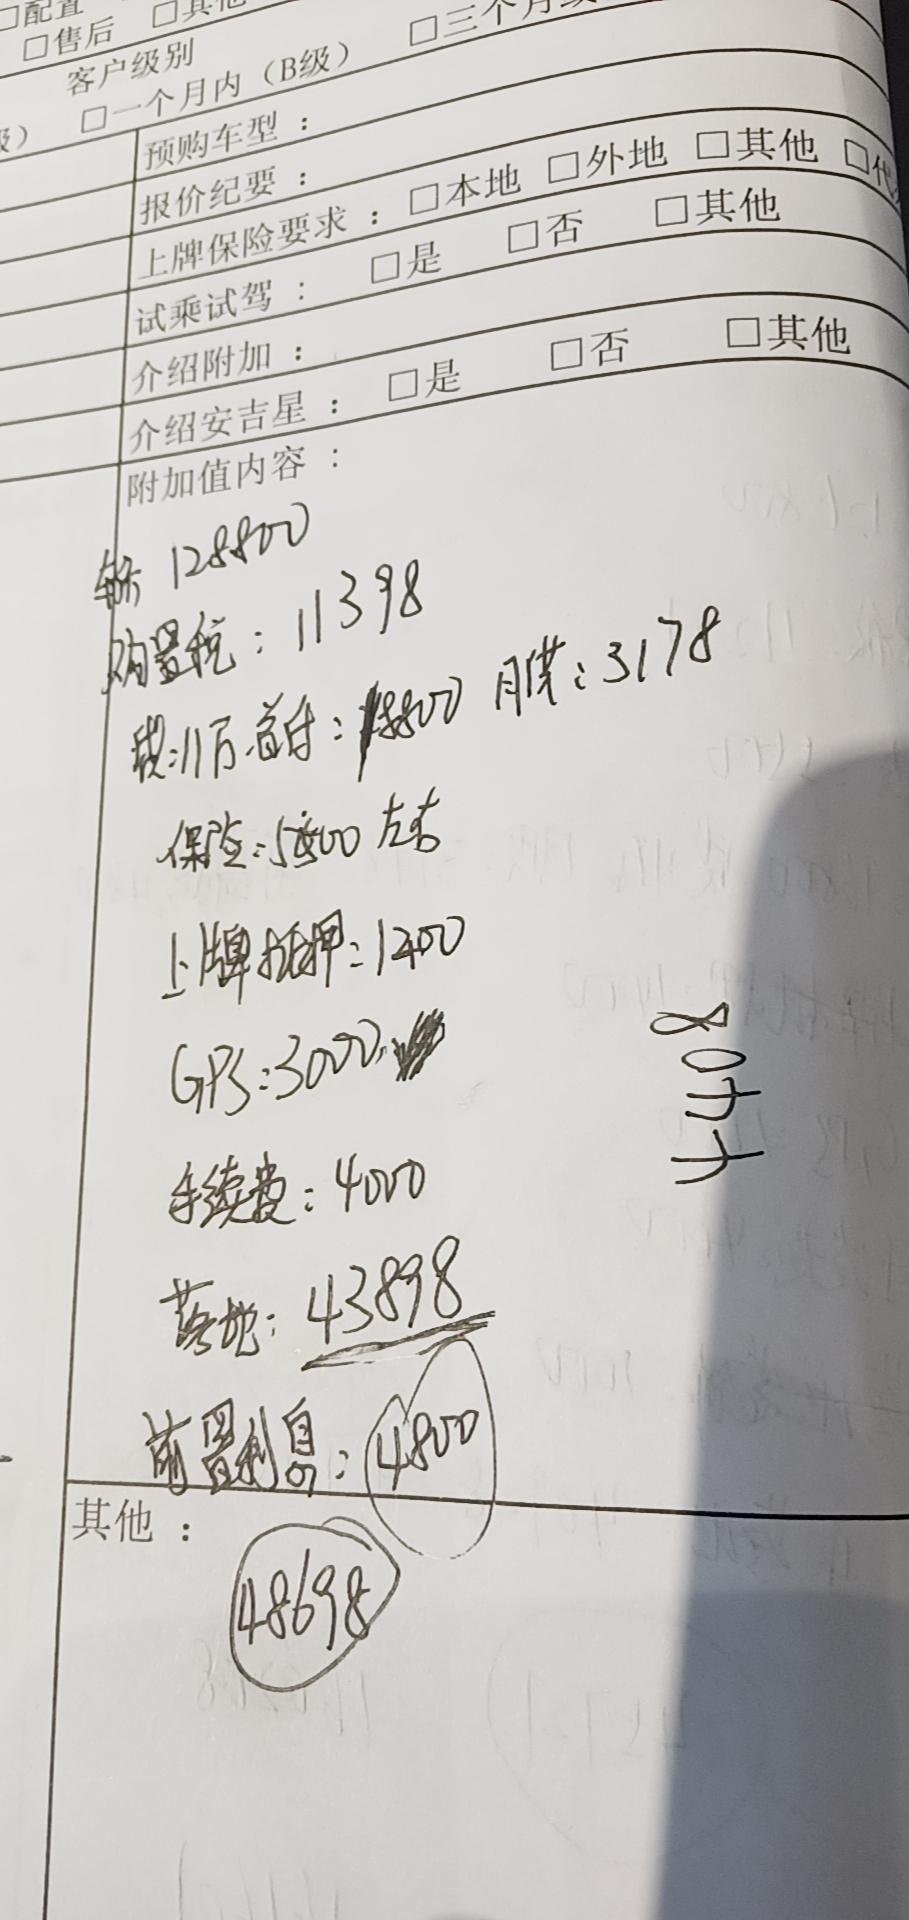 □配置 □其他
□售后
客户级别
级） □一个月内（B级） □三个月
预购车型：
报价纪要：
上牌保险要求：□本地 □外地 □其他 □代
试乘试驾： □是 □否 □其他
介绍附加：
介绍安吉星： □是 □否 □其他
附加值内容：
128800
购置税：11398
11万 首付：18800 月供：3178
保险：5500 左右
上牌抵押：1200
GPS：3000
手续费：4000
落地：43898
前置利息：4800
8044
其他：
48698